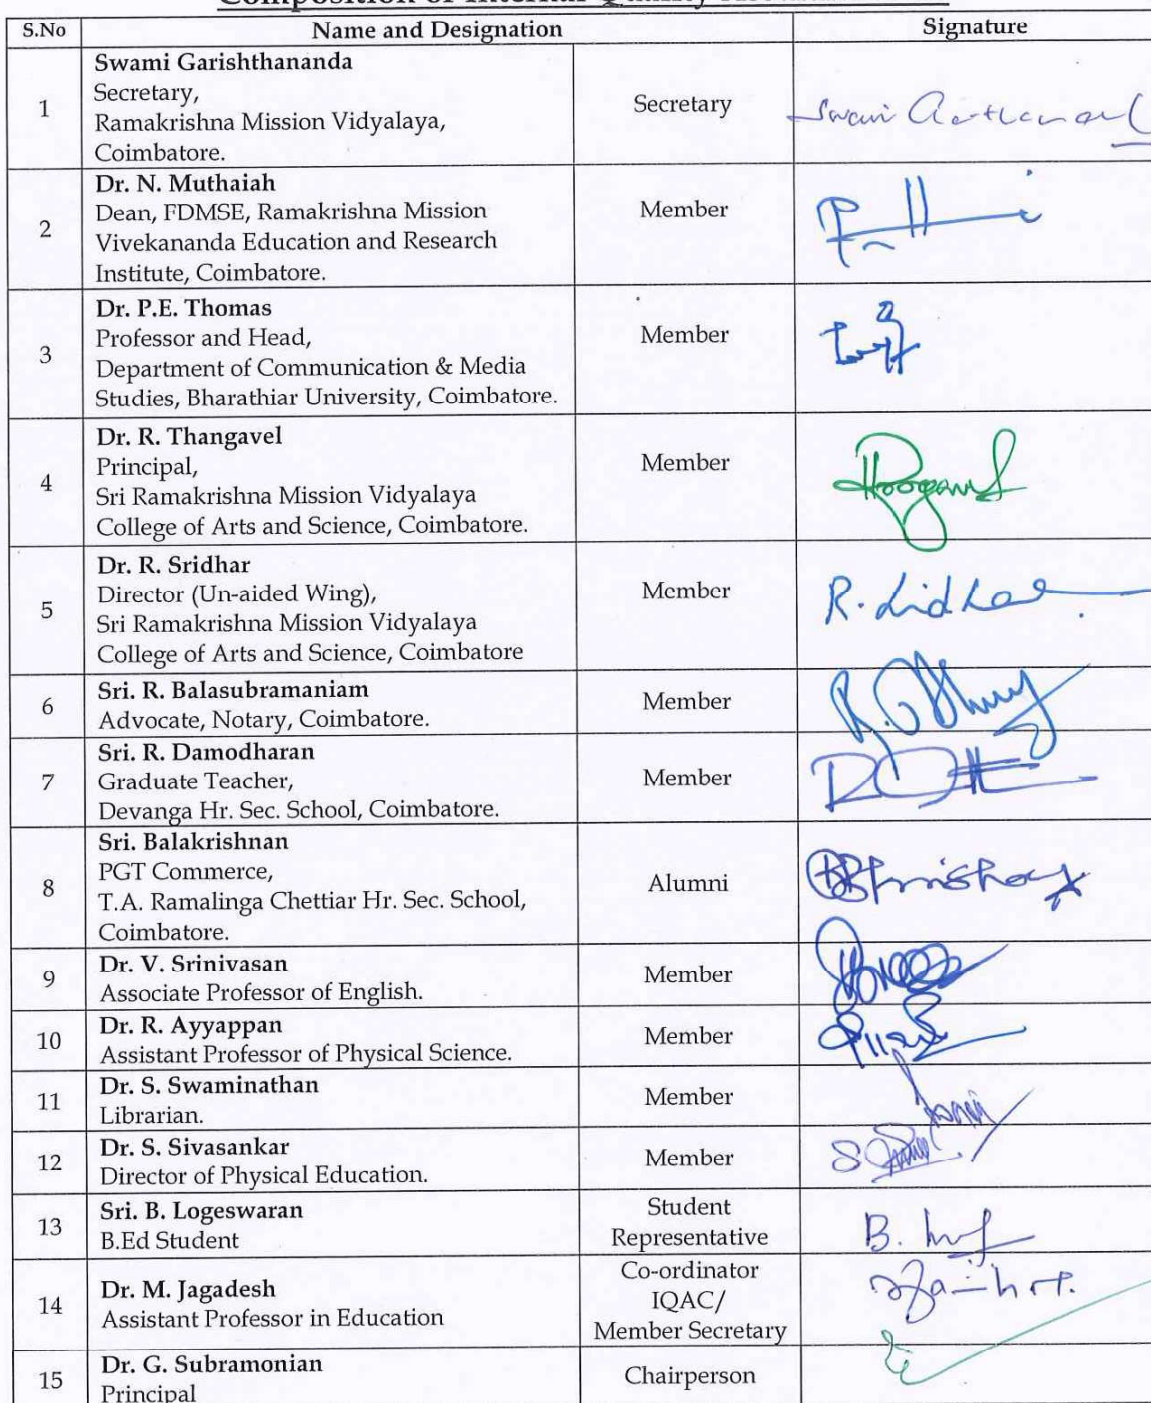 Composition of Internal Quality
S.No Name and Designation Signature
1
Swami Garishthananda
Secretary,
Ramakrishna Mission Vidyalaya,
Coimbatore.
Secretary
Swami
2
Dr. N. Muthaiah
Dean, FDMSE, Ramakrishna Mission
Vivekananda Education and Research
Institute, Coimbatore.
Member
3
Dr. P.E. Thomas
Professor and Head,
Department of Communication & Media
Studies, Bharathiar University, Coimbatore.
Member
4
Dr. R. Thangavel
Principal,
Sri Ramakrishna Mission Vidyalaya
College of Arts and Science, Coimbatore.
Member
5
Dr. R. Sridhar
Director (Un-aided Wing),
Sri Ramakrishna Mission Vidyalaya
College of Arts and Science, Coimbatore
Member
R. Sridhar
6
Sri. R. Balasubramaniam
Advocate, Notary, Coimbatore.
Member
7
Sri. R. Damodharan
Graduate Teacher,
Devanga Hr. Sec. School, Coimbatore.
Member
8
Sri. Balakrishnan
PGT Commerce,
T.A. Ramalinga Chettiar Hr. Sec. School,
Coimbatore.
Alumni
9
Dr. V. Srinivasan
Associate Professor of English.
Member
10
Dr. R. Ayyappan
Assistant Professor of Physical Science.
Member
11
Dr. S. Swaminathan
Librarian.
Member
12
Dr. S. Sivasankar
Director of Physical Education.
Member
13
Sri. B. Logeswaran
B.Ed Student
Student
Representative
B.
14
Dr. M. Jagadesh
Assistant Professor in Education
Co-ordinator
IQAC/
Member Secretary
15
Dr. G. Subramonian
Principal
Chairperson